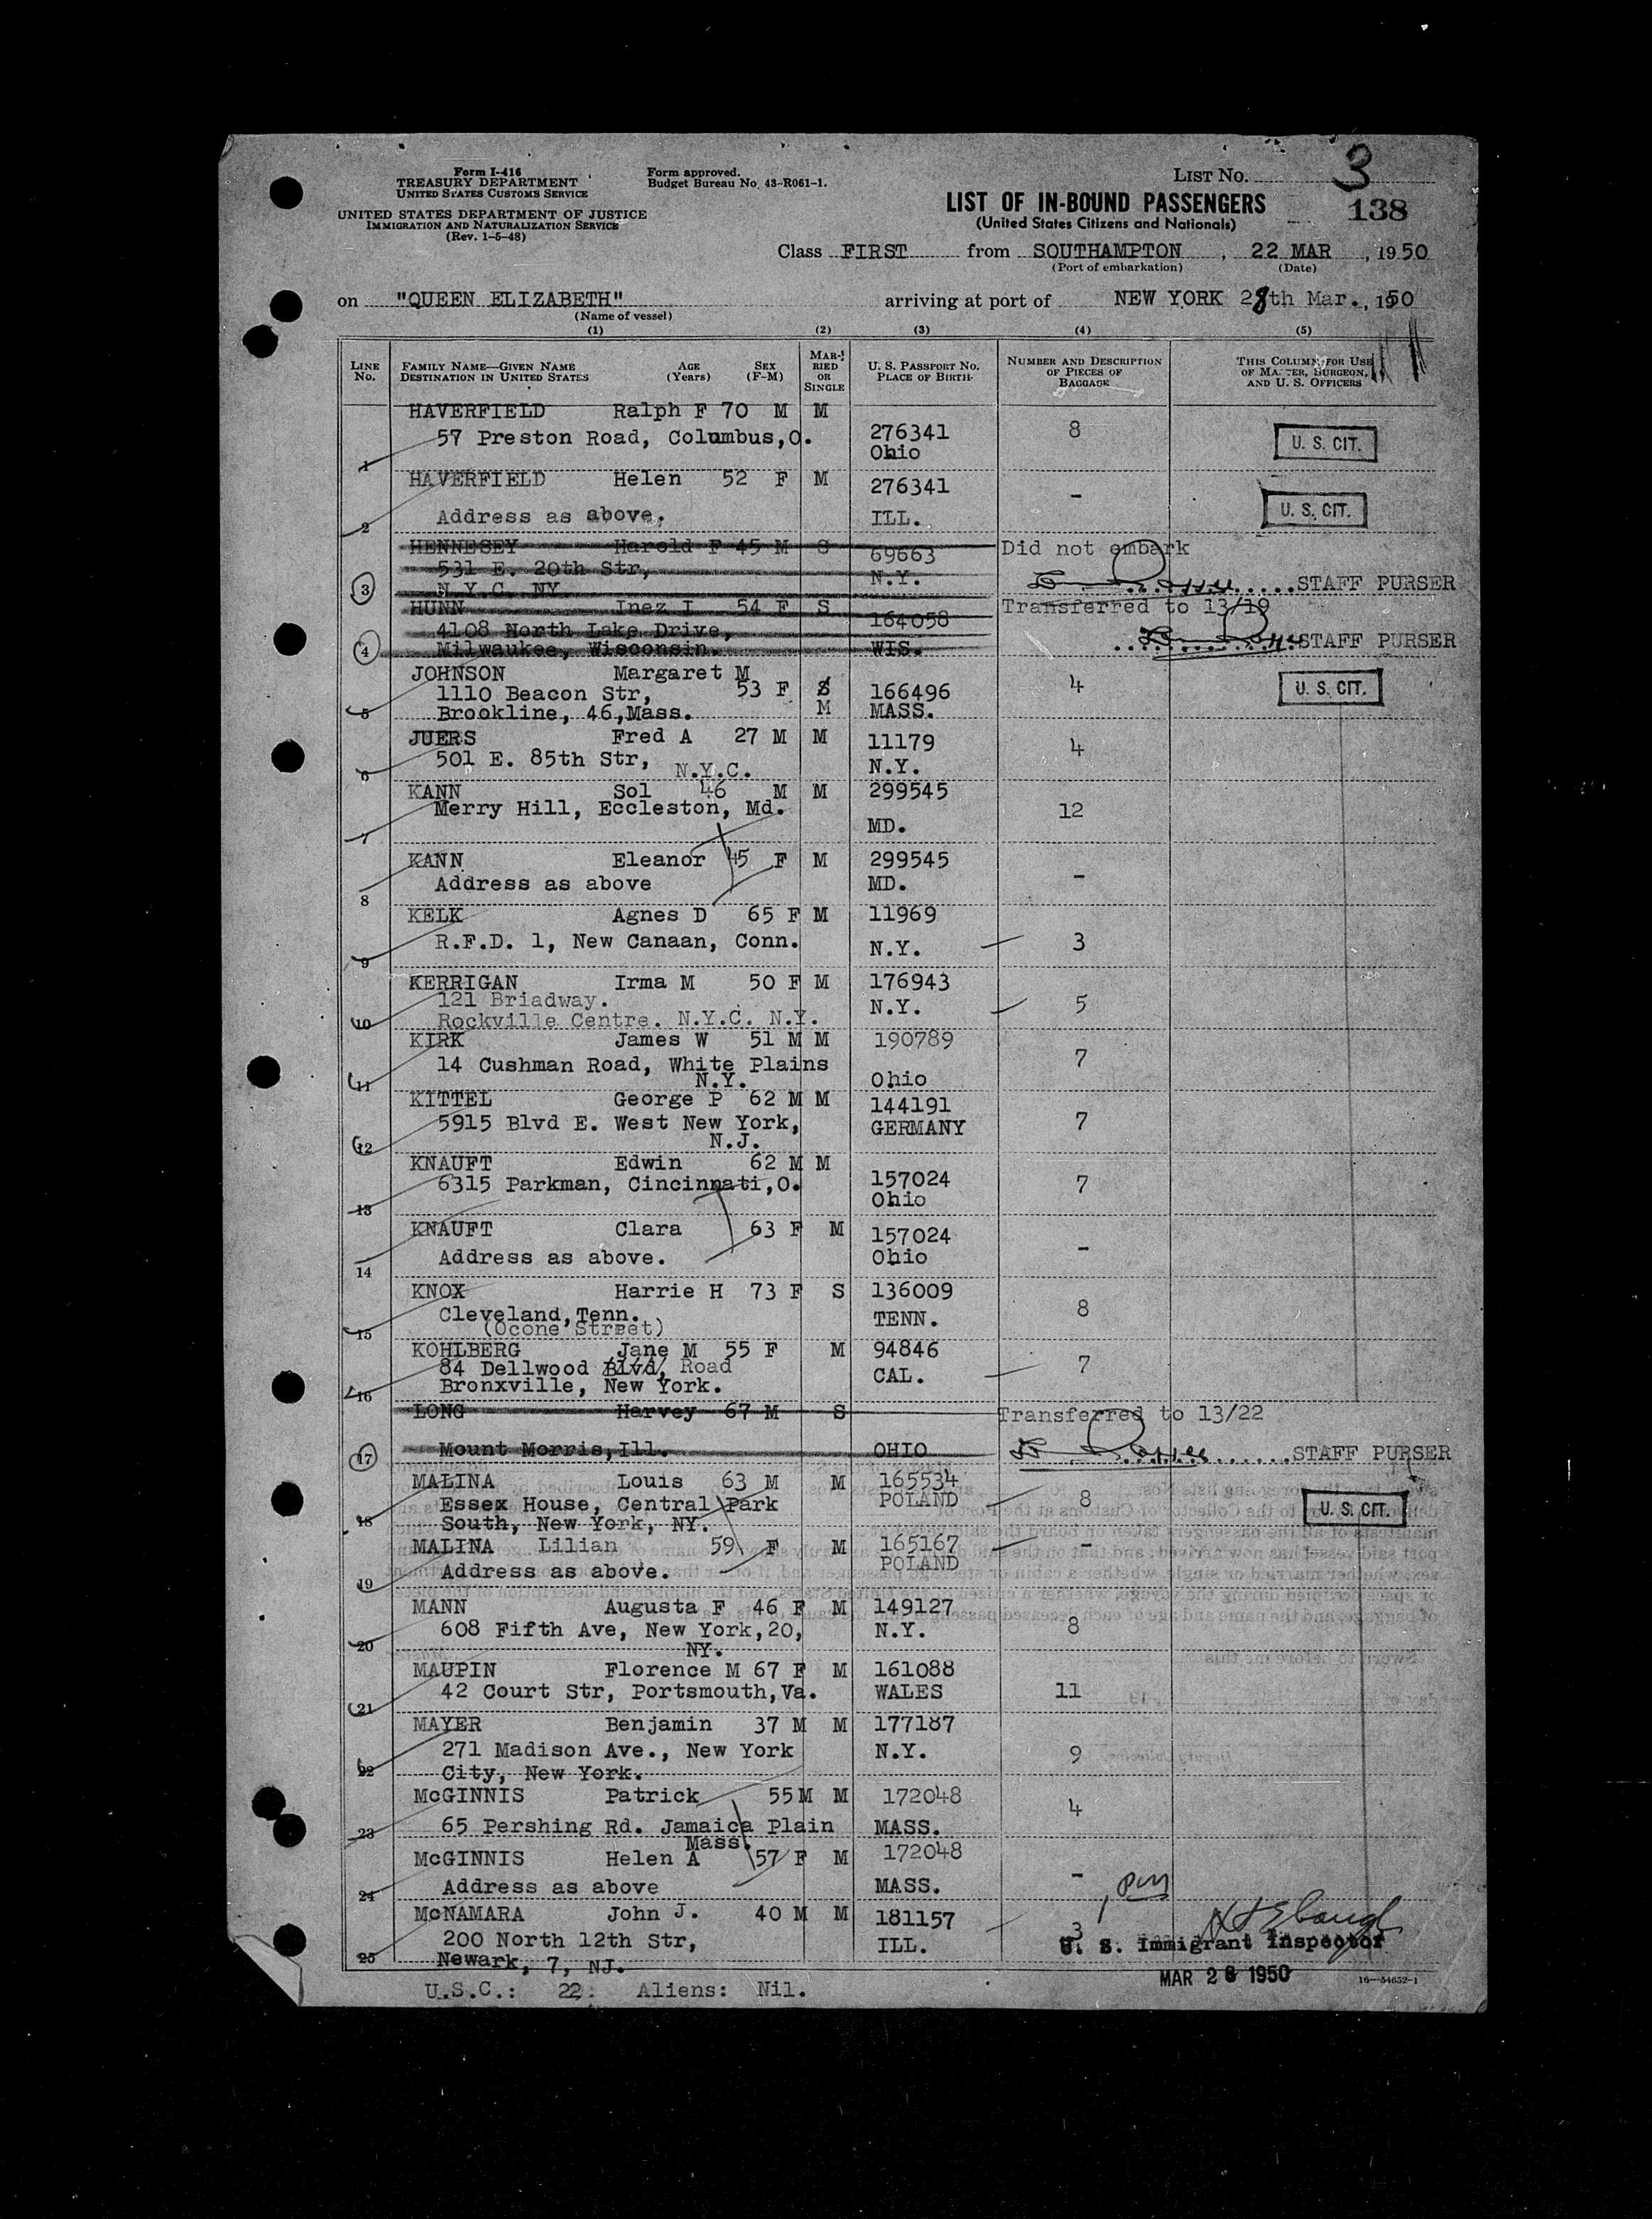 Form I-416
TREASURY DEPARTMENT
UNITED STATES CUSTOMS SERVICE
UNITED STATES DEPARTMENT OF JUSTICE
IMMIGRATION AND NATURALIZATION SERVICE
(Rev. 1-5-48)
Form approved.
Budget Bureau No. 43-R061-1.
LIST NO. 3
LIST OF IN-BOUND PASSENGERS
(United States Citizens and Nationals)
138
Class FIRST from SOUTHAMPTON, 22 MAR, 1950
(Port of embarkation) (Date)
on "QUEEN ELIZABETH" arriving at port of NEW YORK 28th Mar., 1950
(Name of vessel)
(1) (2) (3) (4) (5)
LINE No. FAMILY NAME—GIVEN NAME DESTINATION IN UNITED STATES AGE (Years) SEX (F-M) MARRIED OR SINGLE U. S. PASSPORT NO. PLACE OF BIRTH NUMBER AND DESCRIPTION OF PIECES OF BAGGAGE THIS COLUMN FOR USE OF MASTER, SURGEON, AND U. S. OFFICERS
HAVERFIELD Ralph F 70 M M
57 Preston Road, Columbus,O. 276341 8 U. S. CIT.
1 Ohio
HAVERFIELD Helen 52 F M 276341 -
2 Address as above. ILL. U. S. CIT.
HENNESEY Harold F 45 M S 69663 Did not embark
531 E. 20th Str, N.Y. STAFF PURSER
3 N.Y.C. NY
HUNN Inez I 54 F S 164058 Transferred to 13/19
4108 North Lake Drive, STAFF PURSER
4 Milwaukee, Wisconsin. WIS.
JOHNSON Margaret M
1110 Beacon Str, 53 F S 166496 4 U. S. CIT.
5 Brookline, 46,Mass. M MASS.
JUERS Fred A 27 M M 11179 4
6 501 E. 85th Str, N.Y.C. N.Y.
KANN Sol 46 M M 299545
Merry Hill, Eccleston, Md. 12
7 MD.
KANN Eleanor 45 F M 299545 -
8 Address as above MD.
KELK Agnes D 65 F M 11969
9 R.F.D. 1, New Canaan, Conn. N.Y. 3
KERRIGAN Irma M 50 F M 176943
121 Briadway. N.Y. 5
10 Rockville Centre. N.Y.C. N.Y.
KIRK James W 51 M M 190789
14 Cushman Road, White Plains 7
11 N.Y. Ohio
KITTEL George P 62 M M 144191
5915 Blvd E. West New York, GERMANY 7
12 N.J.
KNAUFT Edwin 62 M M
6315 Parkman, Cincinnati,O. 157024 7
13 Ohio
KNAUFT Clara 63 F M 157024 -
14 Address as above. Ohio
KNOX Harrie H 73 F S 136009
Cleveland,Tenn. TENN. 8
15 (Ocone Street)
KOHLBERG Jane M 55 F M 94846
84 Dellwood Blvd, Road CAL. 7
16 Bronxville, New York.
LONG Harvey 67 M S Transferred to 13/22
17 Mount Morris,Ill. OHIO STAFF PURSER
MALINA Louis 63 M M 165534
Essex House, Central Park POLAND 8 U. S. CIT.
18 South, New York, NY.
MALINA Lilian 59 F M 165167 -
19 Address as above. POLAND
MANN Augusta F 46 F M 149127
608 Fifth Ave, New York,20, N.Y. 8
20 NY.
MAUPIN Florence M 67 F M 161088
21 42 Court Str, Portsmouth,Va. WALES 11
MAYER Benjamin 37 M M 177187
271 Madison Ave., New York N.Y. 9
22 City, New York.
McGINNIS Patrick 55 M M 172048 4
23 65 Pershing Rd. Jamaica Plain MASS.
Mass.
McGINNIS Helen A 57 F M 172048
24 Address as above MASS. -
McNAMARA John J. 40 M M 181157 3
200 North 12th Str, ILL. U. S. Immigrant Inspector
25 Newark, 7, NJ.
MAR 28 1950 16—54652-1
U.S.C.: 22: Aliens: Nil.